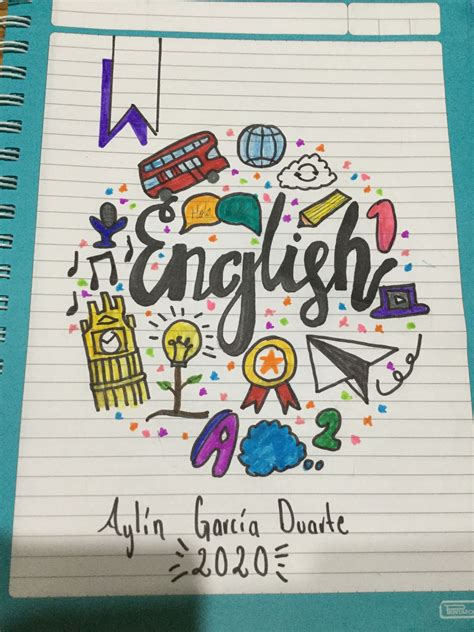 English
1
A
2
Aylín García Duarte
2020